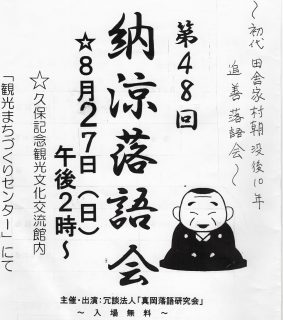 ～初代 田舎家村朝 没後10年
追善落語会～
第48回
納涼落語会
☆8月27日（日）
午後2時～
☆久保記念観光文化交流館内
「観光まちづくりセンター」にて
主催・出演：冗談法人「真岡落語研究会」
～ 入場無料 ～